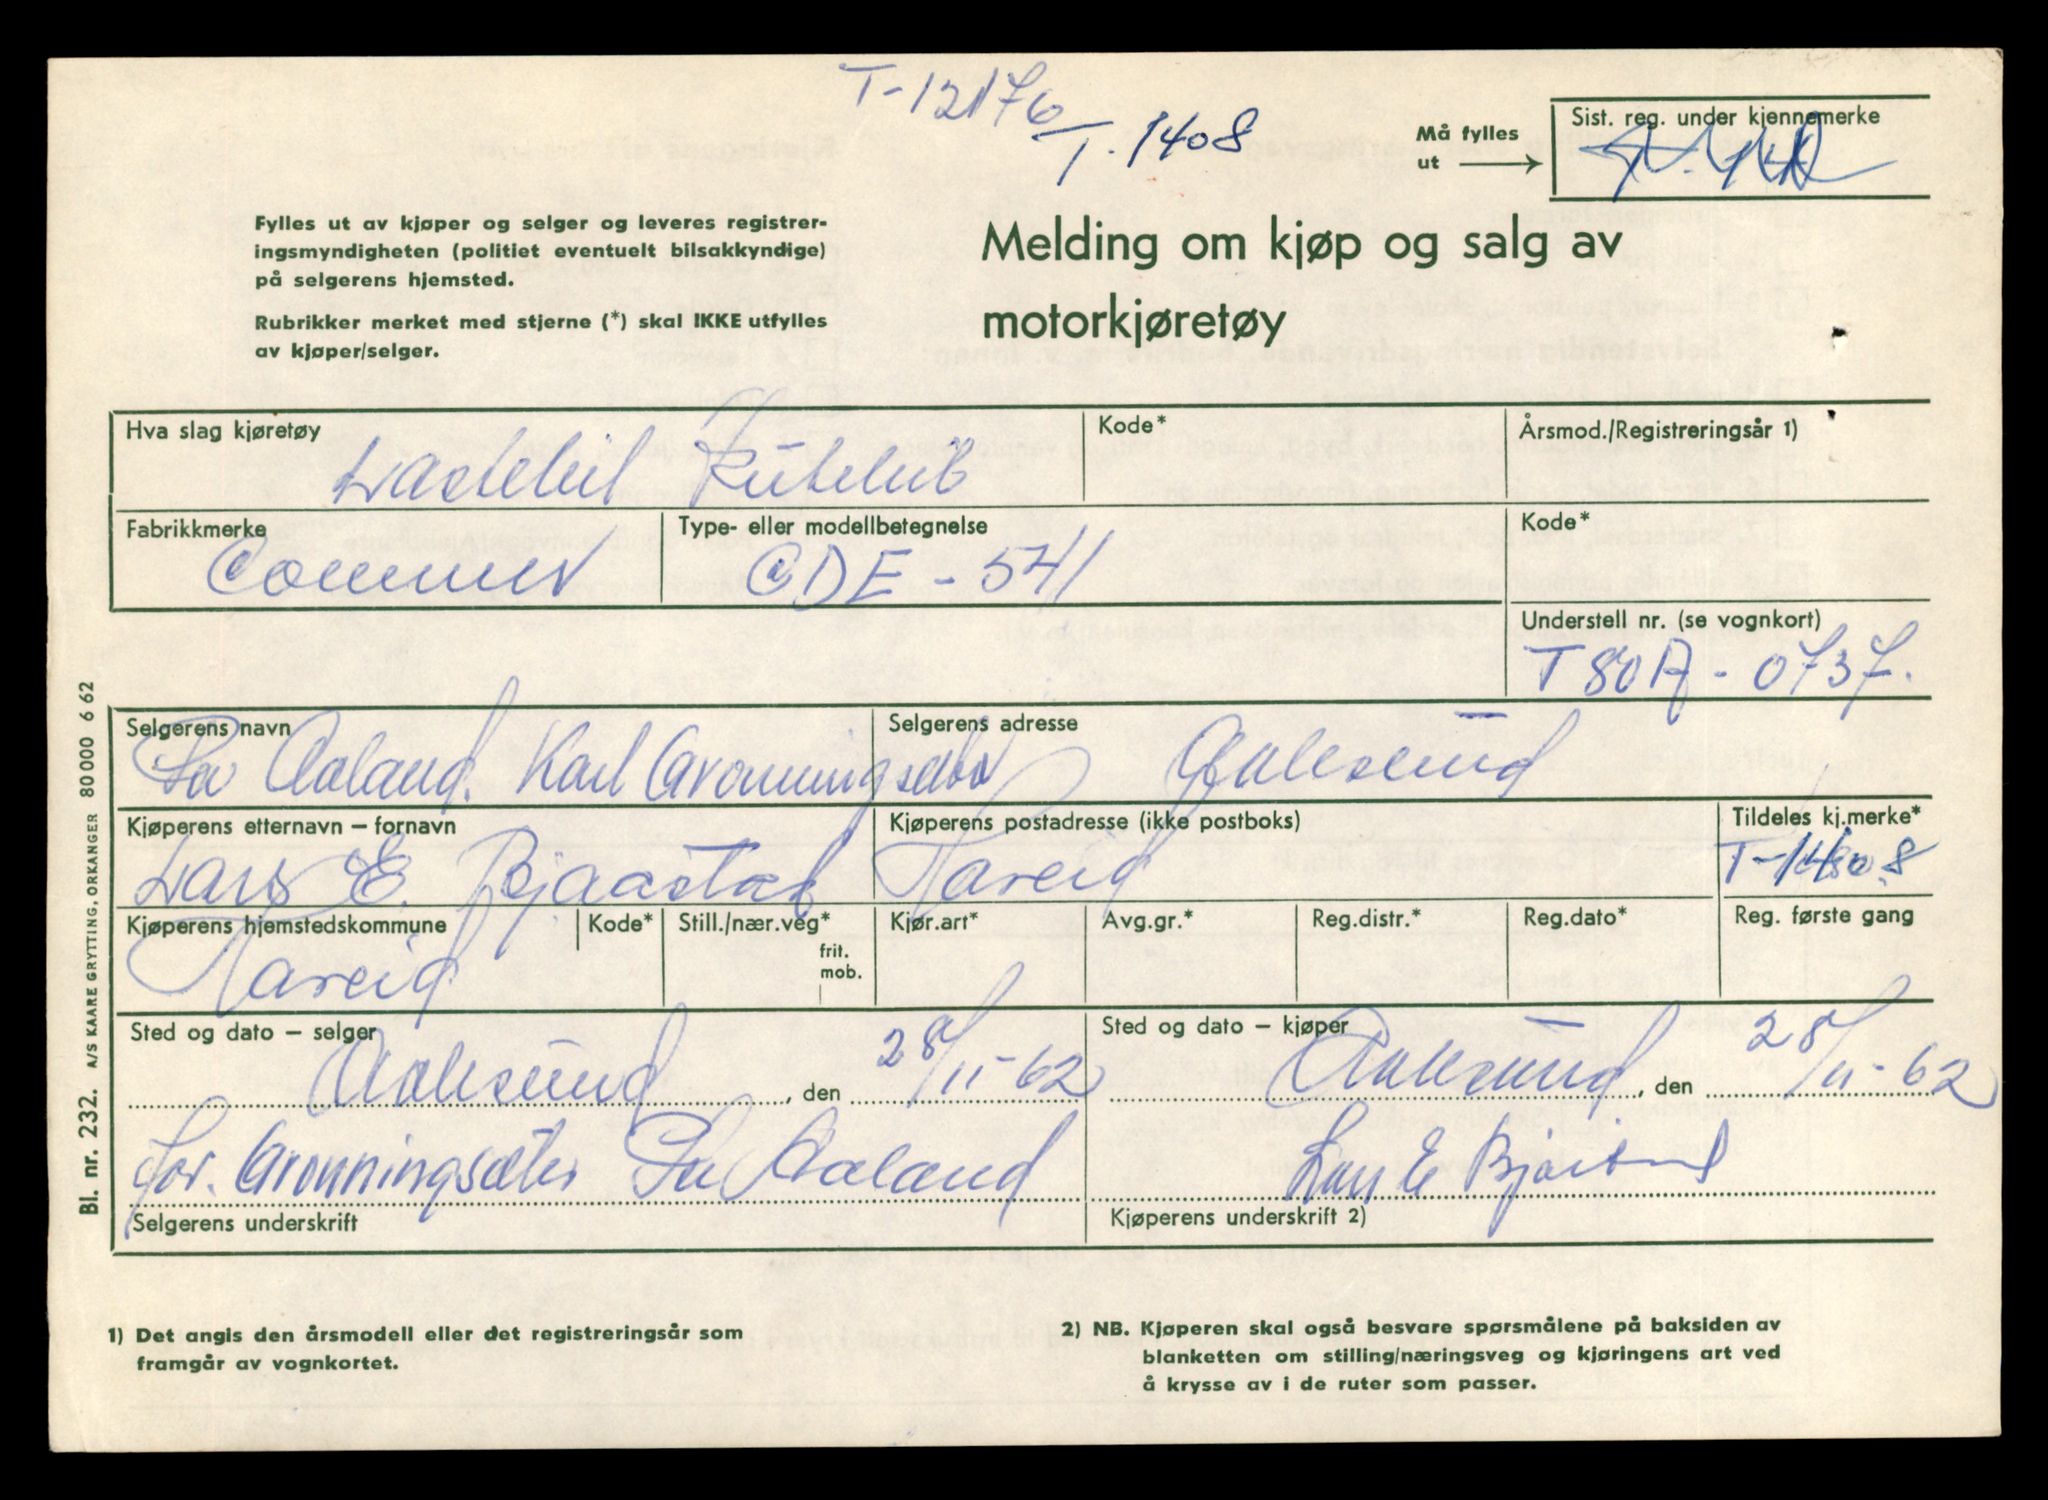 T-12176
T. 1408
Må fylles
ut
Sist. reg. under kjennemerke
Fylles ut av kjøper og selger og leveres registrer-
ingsmyndigheten (politiet eventuelt bilsakkyndige)
på selgerens hjemsted.
Rubrikker merket med stjerne (*) skal IKKE utfylles
av kjøper/selger.
Melding om kjøp og salg av
motorkjøretøy
Hva slag kjøretøy
Kode*
Årsmod./Registreringsår 1)
Lastebil Rutebil
Fabrikkmerke
Type- eller modellbetegnelse
Kode*
Commer
CDE - 541
Understell nr. (se vognkort)
T80A - 0737.
Selgerens navn
Selgerens adresse
Aaland. Karl Grønningsæter
Aalesund
Kjøperens etternavn – fornavn
Kjøperens postadresse (ikke postboks)
Tildeles kj.merke*
Lars E. Bjaastad
Hareid
T-1408
Kjøperens hjemstedskommune
Kode*
Still./nær.veg*
frit.
mob.
Kjør.art*
Avg.gr.*
Reg.distr.*
Reg.dato*
Reg. første gang
Hareid
Sted og dato – selger
Aalesund, den 28/11-62
Sted og dato – kjøper
Aalesund, den 28/11-62
for. Grønningsæter Aaland
Lars E Bjåstad
Selgerens underskrift
Kjøperens underskrift 2)
1) Det angis den årsmodell eller det registreringsår som
framgår av vognkortet.
2) NB. Kjøperen skal også besvare spørsmålene på baksiden av
blanketten om stilling/næringsveg og kjøringens art ved
å krysse av i de ruter som passer.
Bl. nr. 232. A/S KAARE GRYTTING, ORKANGER 80000 6 62